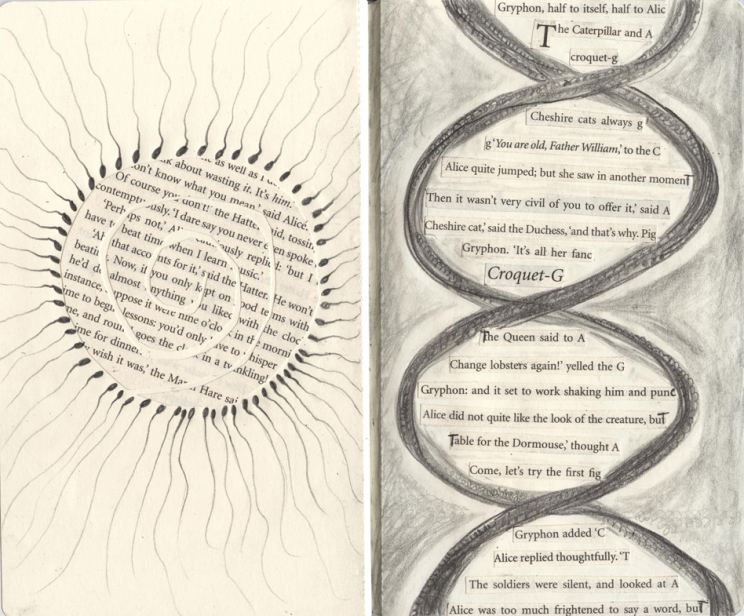 as well as I
k about wasting it. It's him.
on't know what you mean,' said Alice.
Of course you don't!' the Hatte said, tossin
contemptuously. 'I dare say you never e en spoke
'Perh ps not,' Al cautiously replied: 'but I
have t beat time when I learn music.'
'Ah that accounts for it,' said the Hatter. He won't
beatin Now, if you only kept on good terms with
he'd d almost anything you liked with the cloc
instance, suppose it were nine o'clo in the morni
ime to begin lessons: you'd only have to whisper
ne, and roun goes the cl in a twinkling!
ime for dinner
wish it was,' the Mar Hare sai
Gryphon, half to itself, half to Alic
The Caterpillar and A
croquet-g
Cheshire cats always g
g 'You are old, Father William,' to the C
Alice quite jumped; but she saw in another momenT
Then it wasn't very civil of you to offer it,' said A
Cheshire cat,' said the Duchess, 'and that's why. Pig
Gryphon. 'It's all her fanc
Croquet-G
The Queen said to A
Change lobsters again!' yelled the G
Gryphon: and it set to work shaking him and punc
Alice did not quite like the look of the creature, buT
Table for the Dormouse,' thought A
Come, let's try the first fig
Gryphon added 'C
Alice replied thoughtfully. 'T
The soldiers were silent, and looked at A
Alice was too much frightened to say a word, buT